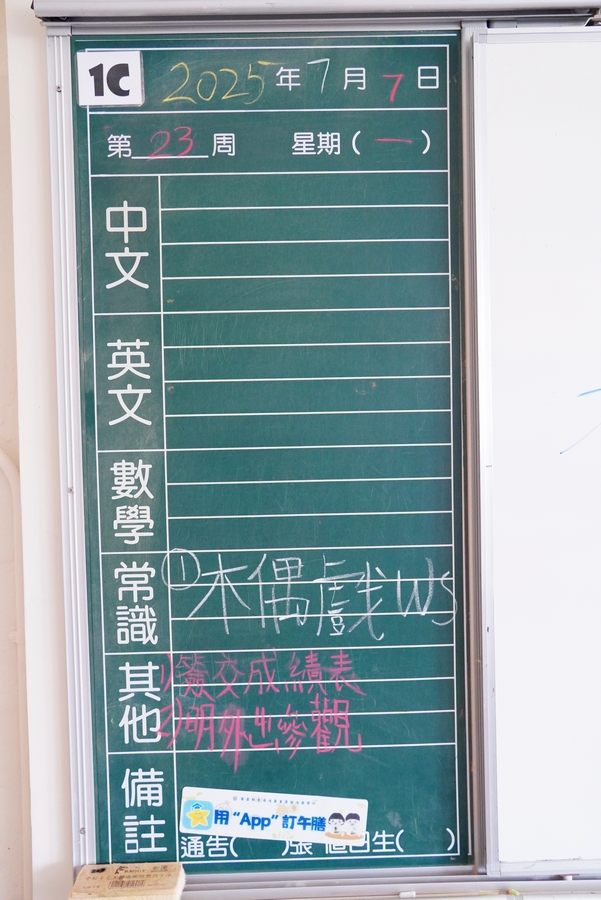 1C 2025年7月7日
第23周 星期(一)
中文
英文
數學
常識 ①木偶戲WS
其他 1)簽交成績表
2)明外出參觀
備註
用“App”訂午膳
通告( )張 回生( )